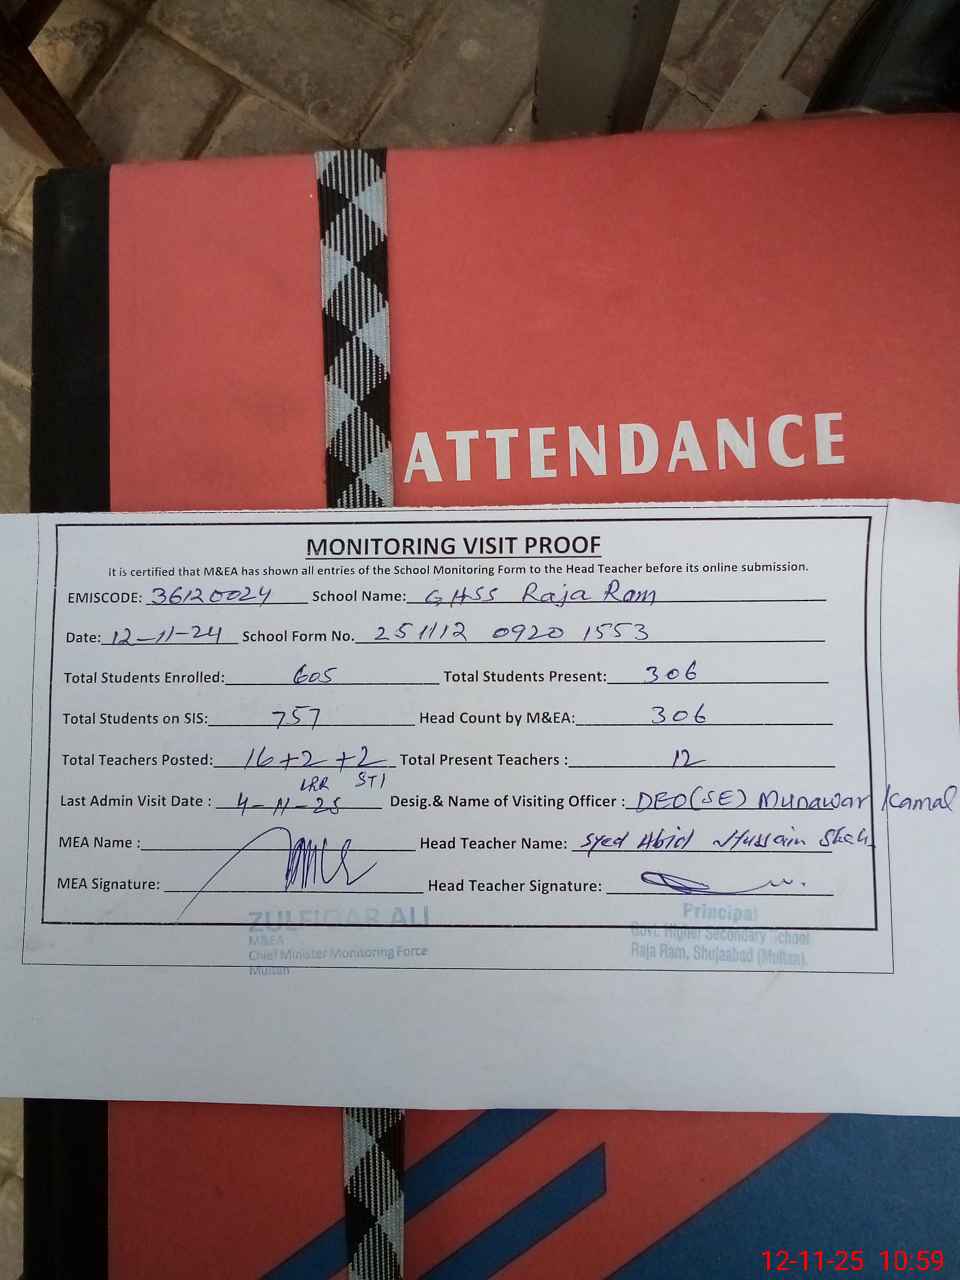 ATTENDANCE
MONITORING VISIT PROOF
It is certified that M&EA has shown all entries of the School Monitoring Form to the Head Teacher before its online submission.
EMISCODE: 36120024 School Name: GHSS Raja Ram
Date: 12-11-24 School Form No. 251112 0920 1553
Total Students Enrolled: 605 Total Students Present: 306
Total Students on SIS: 757 Head Count by M&EA: 306
Total Teachers Posted: 16+2+2 Total Present Teachers : 12
LRR STI
Last Admin Visit Date : 4-11-25 Desig.& Name of Visiting Officer : DEO(SE) Munawar Kamal
MEA Name : Head Teacher Name: Syed Abid Hussain Shah
MEA Signature: Head Teacher Signature:
ZULFIQAR ALI
M&EA
Chief Minister Monitoring Force
Multan
Principal
Govt. Higher Secondary School
Raja Ram, Shujaabad (Multan).
12-11-25 10:59